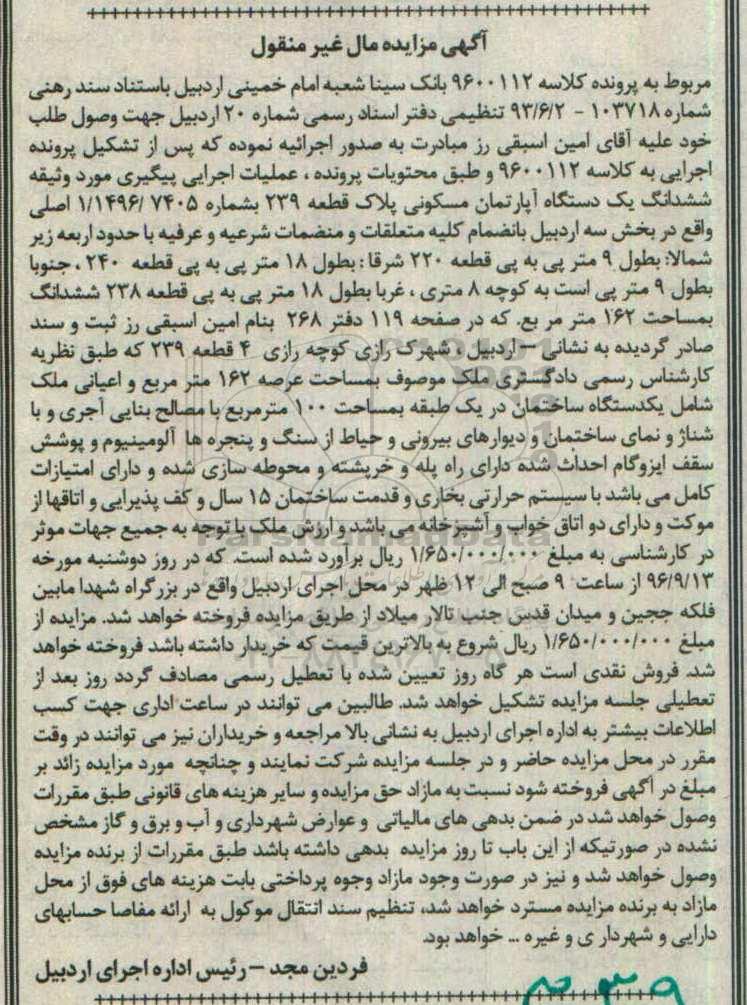 آگهی مزایده مال غیر منقول
مربوط به پرونده کلاسه ۹۶۰۰۱۱۲ بانک سینا شعبه امام خمینی اردبیل باستناد سند رهنی
شماره ۱۰۳۷۱۸ - ۹۳/۶/۲ تنظیمی دفتر اسناد رسمی شماره ۲۰ اردبیل جهت وصول طلب
خود علیه آقای امین اسبقی رز مبادرت به صدور اجرائیه نموده که پس از تشکیل پرونده
اجرایی به کلاسه ۹۶۰۰۱۱۲ و طبق محتویات پرونده ، عملیات اجرایی پیگیری مورد وثیقه
ششدانگ یک دستگاه آپارتمان مسکونی پلاک قطعه ۲۳۹ بشماره ۷۴۰۵ /۱/۱۴۹۶ اصلی
واقع در بخش سه اردبیل بانضمام کلیه متعلقات و منضمات شرعیه و عرفیه با حدود اربعه زیر
شمالا: بطول ۹ متر پی به پی قطعه ۲۲۰ شرقا : بطول ۱۸ متر پی به پی قطعه ۲۴۰ ، جنوبا
بطول ۹ متر پی است به کوچه ۸ متری ، غربا بطول ۱۸ متر پی به پی قطعه ۲۳۸ ششدانگ
بمساحت ۱۶۲ متر مر بع. که در صفحه ۱۱۹ دفتر ۲۶۸ بنام امین اسبقی رز ثبت و سند
صادر گردیده به نشانی – اردبیل ، شهرک رازی کوچه رازی ۴ قطعه ۲۳۹ که طبق نظریه
کارشناس رسمی دادگستری ملک موصوف بمساحت عرصه ۱۶۲ متر مربع و اعیانی ملک
شامل یکدستگاه ساختمان در یک طبقه بمساحت ۱۰۰ مترمربع با مصالح بنایی آجری و با
شناژ و نمای ساختمان و دیوارهای بیرونی و حیاط از سنگ و پنجره ها آلومینیوم و پوشش
سقف ایزوگام احداث شده دارای راه پله و خرپشته و محوطه سازی شده و دارای امتیازات
کامل می باشد با سیستم حرارتی بخاری و قدمت ساختمان ۱۵ سال و کف پذیرایی و اتاقها از
موکت و دارای دو اتاق خواب و آشپزخانه می باشد و ارزش ملک با توجه به جمیع جهات موثر
در کارشناسی به مبلغ ۱/۶۵۰/۰۰۰/۰۰۰ ریال برآورد شده است. که در روز دوشنبه مورخه
۹۶/۹/۱۳ از ساعت ۹ صبح الی ۱۲ ظهر در محل اجرای اردبیل واقع در بزرگراه شهدا مابین
فلکه ججین و میدان قدس جنب تالار میلاد از طریق مزایده فروخته خواهد شد. مزایده از
مبلغ ۱/۶۵۰/۰۰۰/۰۰۰ ریال شروع به بالاترین قیمت که خریدار داشته باشد فروخته خواهد
شد. فروش نقدی است هر گاه روز تعیین شده با تعطیل رسمی مصادف گردد روز بعد از
تعطیلی جلسه مزایده تشکیل خواهد شد. طالبین می توانند در ساعت اداری جهت کسب
اطلاعات بیشتر به اداره اجرای اردبیل به نشانی بالا مراجعه و خریداران نیز می توانند در وقت
مقرر در محل مزایده حاضر و در جلسه مزایده شرکت نمایند و چنانچه مورد مزایده زائد بر
مبلغ در آگهی فروخته شود نسبت به مازاد حق مزایده و سایر هزینه های قانونی طبق مقررات
وصول خواهد شد در ضمن بدهی های مالیاتی و عوارض شهرداری و آب و برق و گاز مشخص
نشده در صورتیکه از این باب تا روز مزایده بدهی داشته باشد طبق مقررات از برنده مزایده
وصول خواهد شد و نیز در صورت وجود مازاد وجوه پرداختی بابت هزینه های فوق از محل
مازاد به برنده مزایده مسترد خواهد شد، تنظیم سند انتقال موکول به ارائه مفاصا حسابهای
دارایی و شهردار ی و غیره ... خواهد بود.
فردین مجد – رئیس اداره اجرای اردبیل